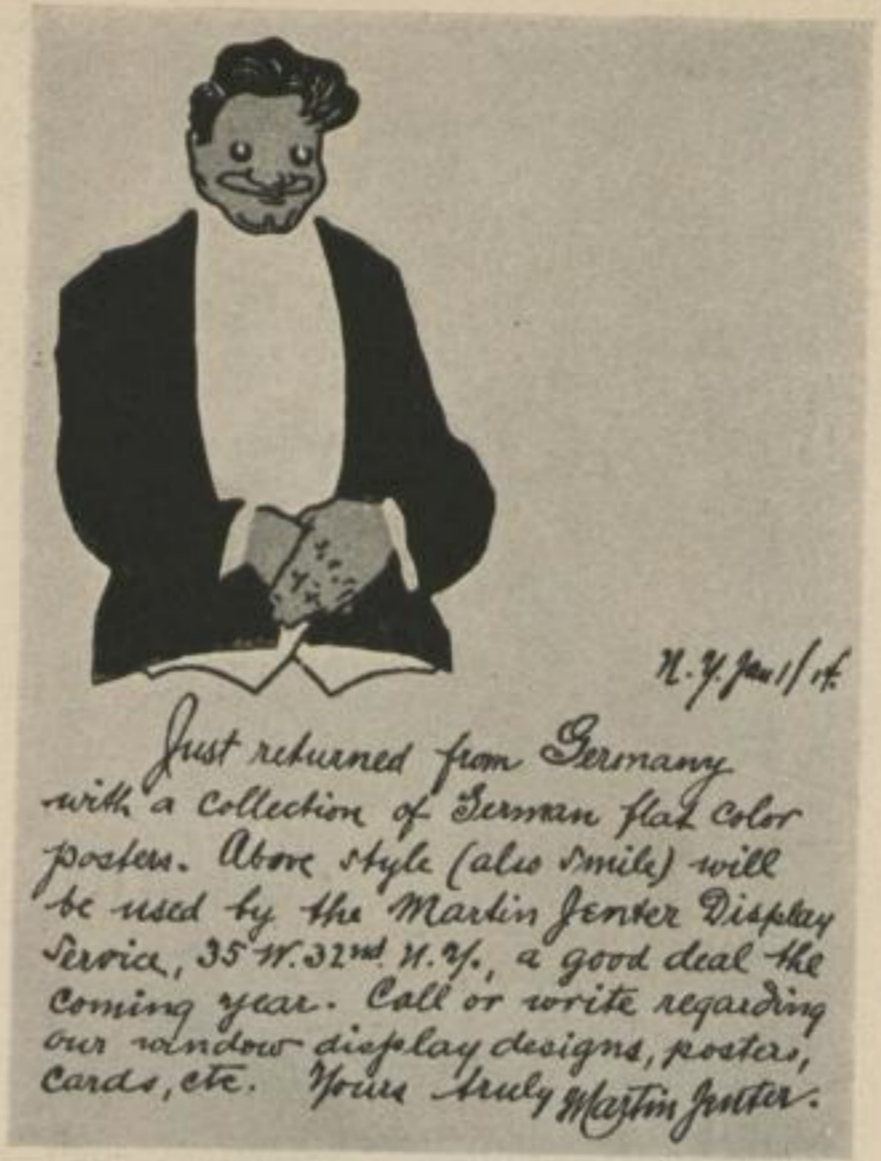 N.Y. Jan 1/14.
Just returned from Germany
with a collection of German flat color
posters. Above style (also smile) will
be used by the Martin Jenter Display
Service, 35 W. 32nd N.Y., a good deal the
coming year. Call or write regarding
our window display designs, posters,
cards, etc. Yours truly Martin Jenter.